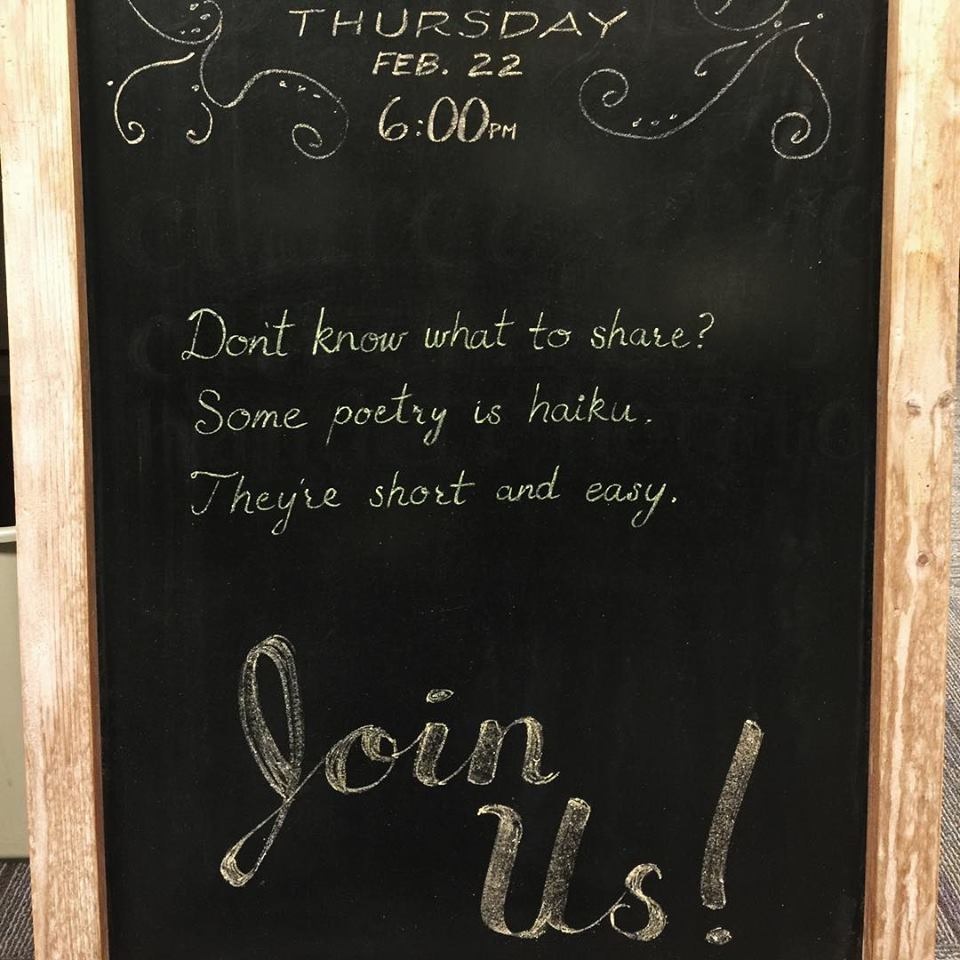 THURSDAY
FEB. 22
6:00PM
Don't know what to share?
Some poetry is haiku.
They're short and easy.
Join
Us!